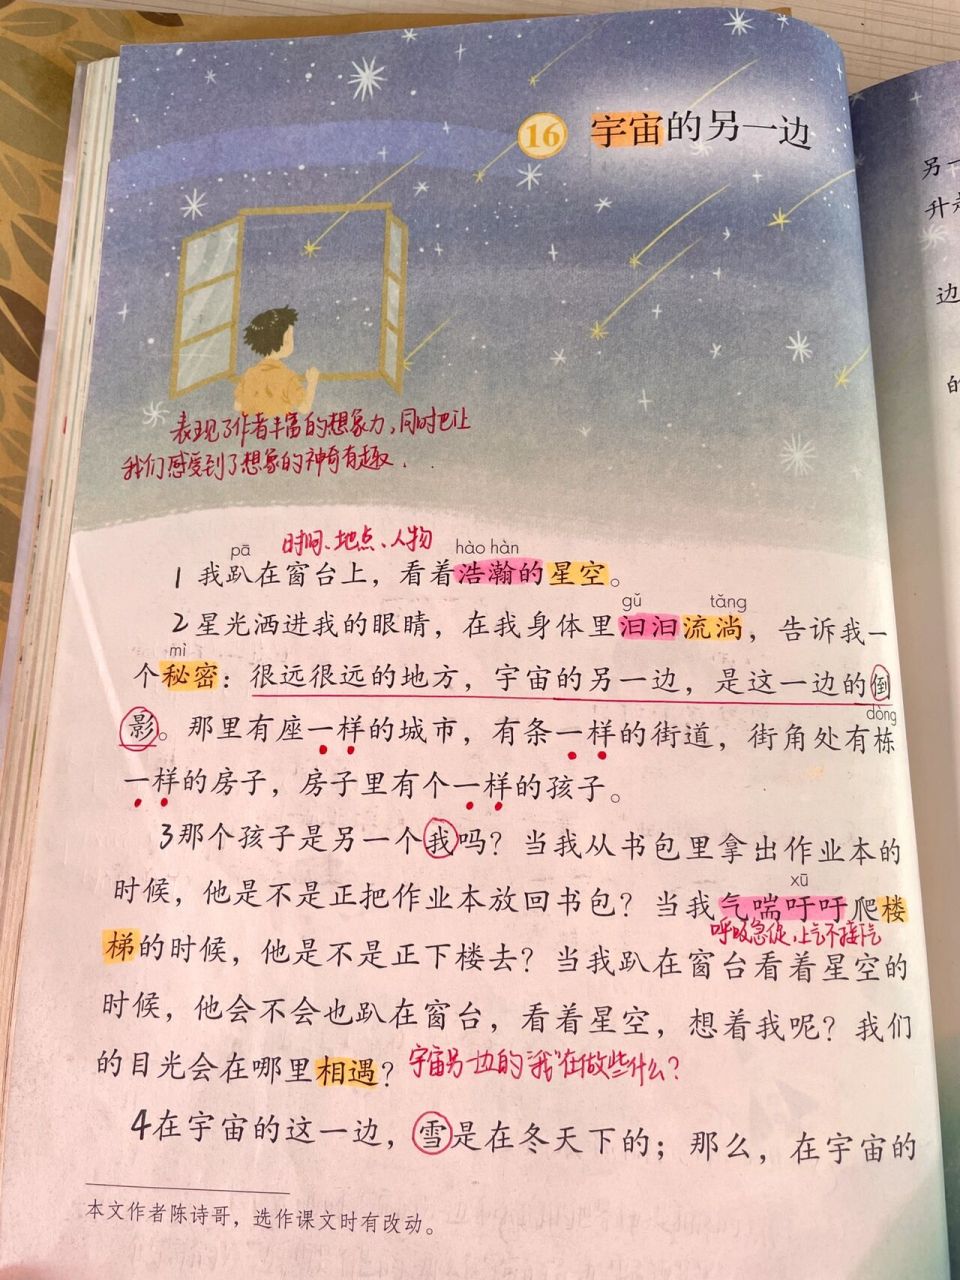 16 宇宙的另一边
另一
升起
边
的
表现了作者丰富的想象力,同时也让
我们感受到了想象的神奇有趣.
时间、地点、人物
pā hào hàn
1 我趴在窗台上，看着浩瀚的星空。
gǔ tǎng
2 星光洒进我的眼睛，在我身体里汩汩流淌，告诉我一
mì
个秘密：很远很远的地方，宇宙的另一边，是这一边的倒
影。那里有座一样的城市，有条一样的街道，街角处有栋
dòng
一样的房子，房子里有个一样的孩子。
3 那个孩子是另一个我吗？当我从书包里拿出作业本的
时候，他是不是正把作业本放回书包？当我气喘吁吁爬楼
xū
呼吸急促,上气不接下气
梯的时候，他是不是正下楼去？当我趴在窗台看着星空的
时候，他会不会也趴在窗台，看着星空，想着我呢？我们
的目光会在哪里相遇？
宇宙另一边的“我”在做些什么?
4 在宇宙的这一边，雪是在冬天下的；那么，在宇宙的
本文作者陈诗哥，选作课文时有改动。